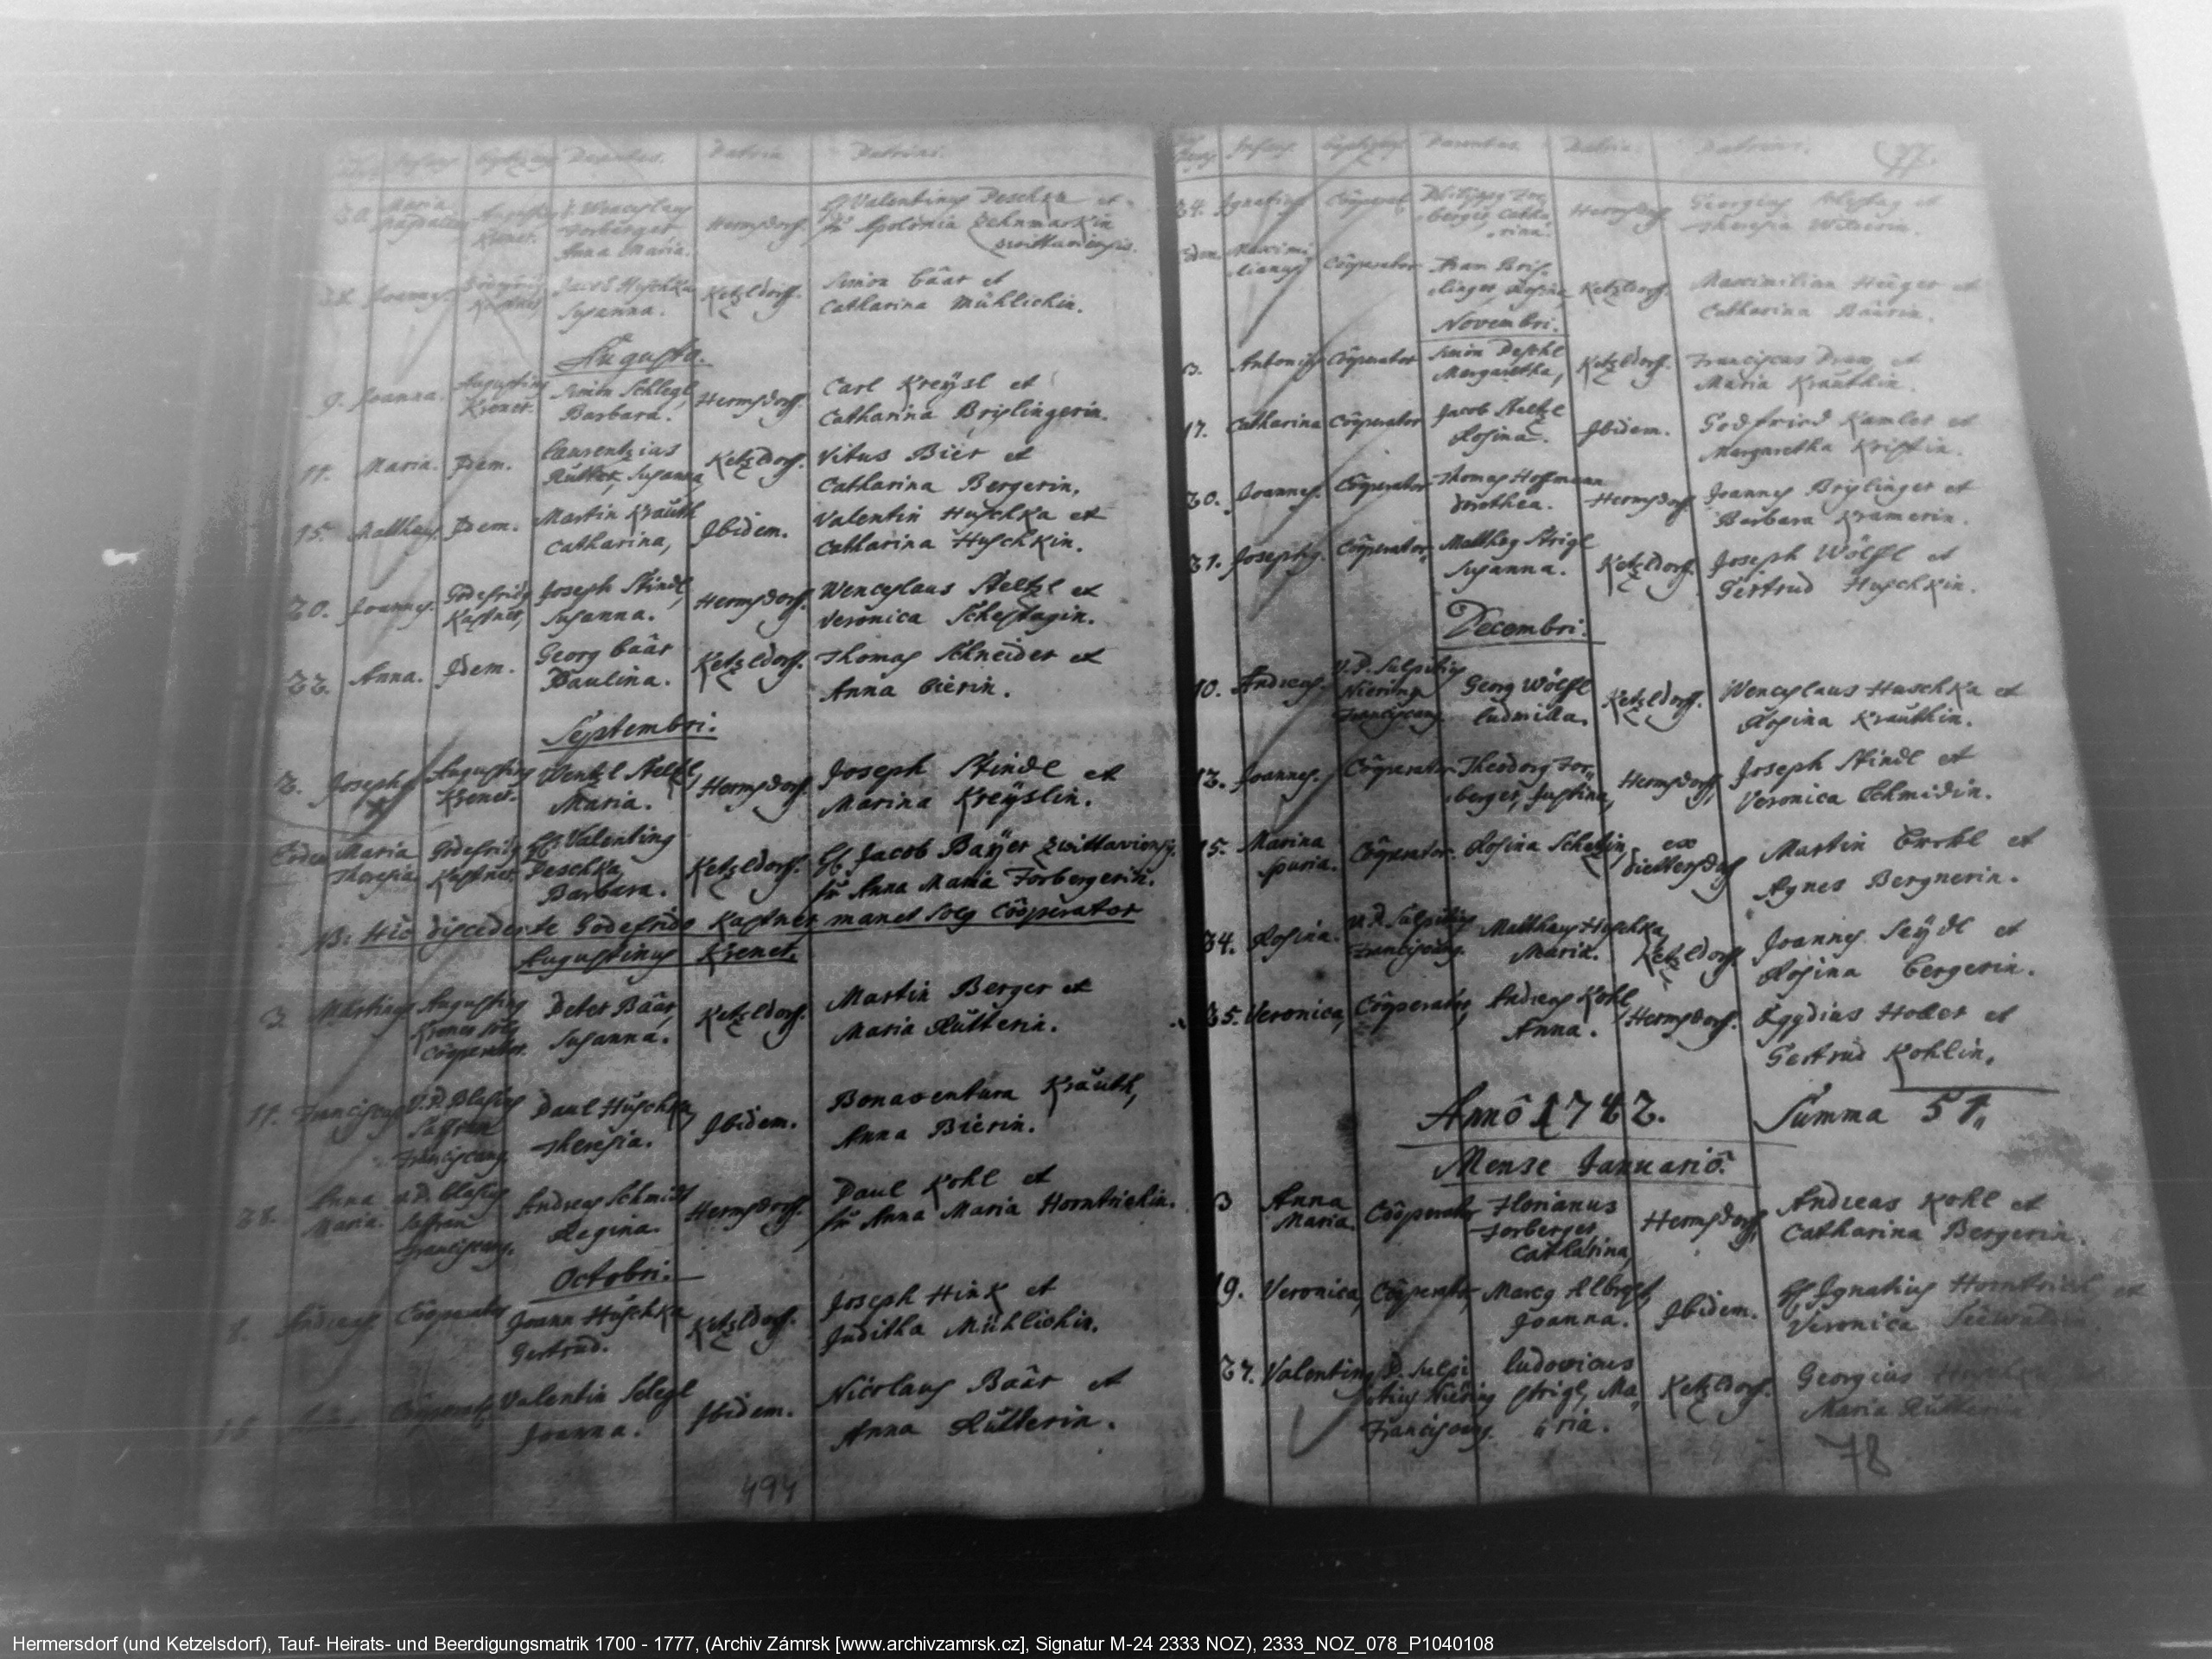 Infans. Parentes. Patria Patrini.
20. Maria Magdalena Augustin Kremer. Wenceslaus Forberger Anna Maria. Hermsdorff. Valentinus Peschka et Apolonia Zehnmarkin Zwittaviensis.
28. Joannes. Kastner Jacob Huschka Susanna. Ketzldorff. Simon Bäär et Catharina Mühlichin.
Augusto.
9. Joanna. Augustin Kremer. Simon Schlegl, Barbara. Hermsdorff. Carl Kreÿsl et Catharina Brislingerin.
11. Maria. Idem. Laurentzius Rutter, Susanna Ketzldorff. Vitus Bier et Catharina Bergerin,
15. Matthaus. Idem. Martin Krauth Catharina, Ibidem. Valentin Huschka et Catharina Huschkin.
20. Joannes. Godefrid Kastner, Joseph Stindl, Susanna. Hermsdorff. Wenceslaus Steltzl et Veronica Schestagin.
22. Anna. Idem. Georg Bäär Paulina. Ketzldorff. Thomas Schneider et Anna Bierin.
Septembri.
2. Joseph. Augustin Kremer. Wentzl Steltzl, Maria. Hermsdorff. Joseph Stindl et Marina Kreÿslin.
Eodem Maria Theresia Godefrid Kastner. Valentinus Peschka, Barbara. Ketzldorff. Jacob Baÿer Zwittaviensis. Anna Maria Forbergerin.
NB: Hic discedente Godefrido Kastner manet solus Cooperator
Augustinus Kremer.
3. Martinus Augustinus Kremer solus Cooperator. Peter Bäär, Susanna. Ketzldorff. Martin Berger et Maria Rutterin.
11. Franciscus V.P. Blasius Saffran Franciscanus. Paul Huschka, Theresia. Ibidem. Bonaventura Krauth, Anna Bierin.
28. Anna Maria. V.P. Blasius Saffran Franciscanus. Andreas Schmidt Regina. Hermsdorff. Paul Kohl et Anna Maria Horntrichin.
Octobri.
8. Andreas Cooperator Joann Huschka Gertrud. Ketzldorff. Joseph Hink et Juditha Mühlichin.
18. Cooperator Valentin Schlegl Joanna. Ibidem. Nicolaus Bäär et Anna Rutterin.
494
Infans. Parentes. Patria. Patrini. 77.
24. Ignatius Cooperat. Philippus Forberger, Catharina. Hermsdorff. Georgius Schestag et Theresia
Eodem Maximilianus Cooperator Fran Brislinger Rosina Ketzldorff. Maximilian Heger et Catharina Bäärin.
Novembri.
13. Antonius Cooperator Simon Peschl Margaretha, Ketzldorff. Franciscus et Maria Krauthin.
17. Catharina Cooperator Jacob Steltzl Rosina. Ibidem. Godfried Kamler et Margaretha Kristin.
20. Joannes. Cooperator Thomas Hoffmann Dorothea. Hermsdorff. Joannes Brislinger et Barbara Kramerin.
21. Josephus. Cooperator. Matthes Strigl Susanna. Ketzldorff. Joseph Wölfl et Gertrud Huschkin.
Decembri.
10. Andreas. V.P. Sulpitius Niering Franciscang. Georg Wölfl Ludmilla. Ketzldorff. Wenceslaus Huschka et Rosina Krauthin.
12. Joannes. Cooperator Theodorg Forberger, Justina, Hermsdorff, Joseph Stindl et Veronica Schmidin.
15. Marina spuria. Cooperator. Rosina ex Dittersdorff Martin et Agnes Bergnerin.
24. Rosina. V.P. Sulpitius Franciscang. Matthaus Huschka, Maria. Ketzldorff. Joannes Seÿdl et Rosina Bergerin.
25. Veronica, Cooperator, Andreas Kohl, Anna. Hermsdorff. Egydius Holler et Gertrud Kohlin.
Anno 1742. Summa 51
Mense Januario.
3 Anna Maria. Cooperator Florianus Forberger Catharina, Hermsdorff, Andreas Kohl et Catharina Bergerin.
19. Veronica, Cooperator, Marcg Albrecht, Joanna. Ibidem. Ignatius Horntrich et Veronica
27. Valentin P. Sulpitius Niering Franciscang. Ludovicus Strigl, Maria. Ketzldorff. Georgius Maria Rutterin
78
Hermersdorf (und Ketzelsdorf), Tauf- Heirats- und Beerdigungsmatrik 1700 - 1777, (Archiv Zámrsk [www.archivzamrsk.cz], Signatur M-24 2333 NOZ), 2333_NOZ_078_P1040108